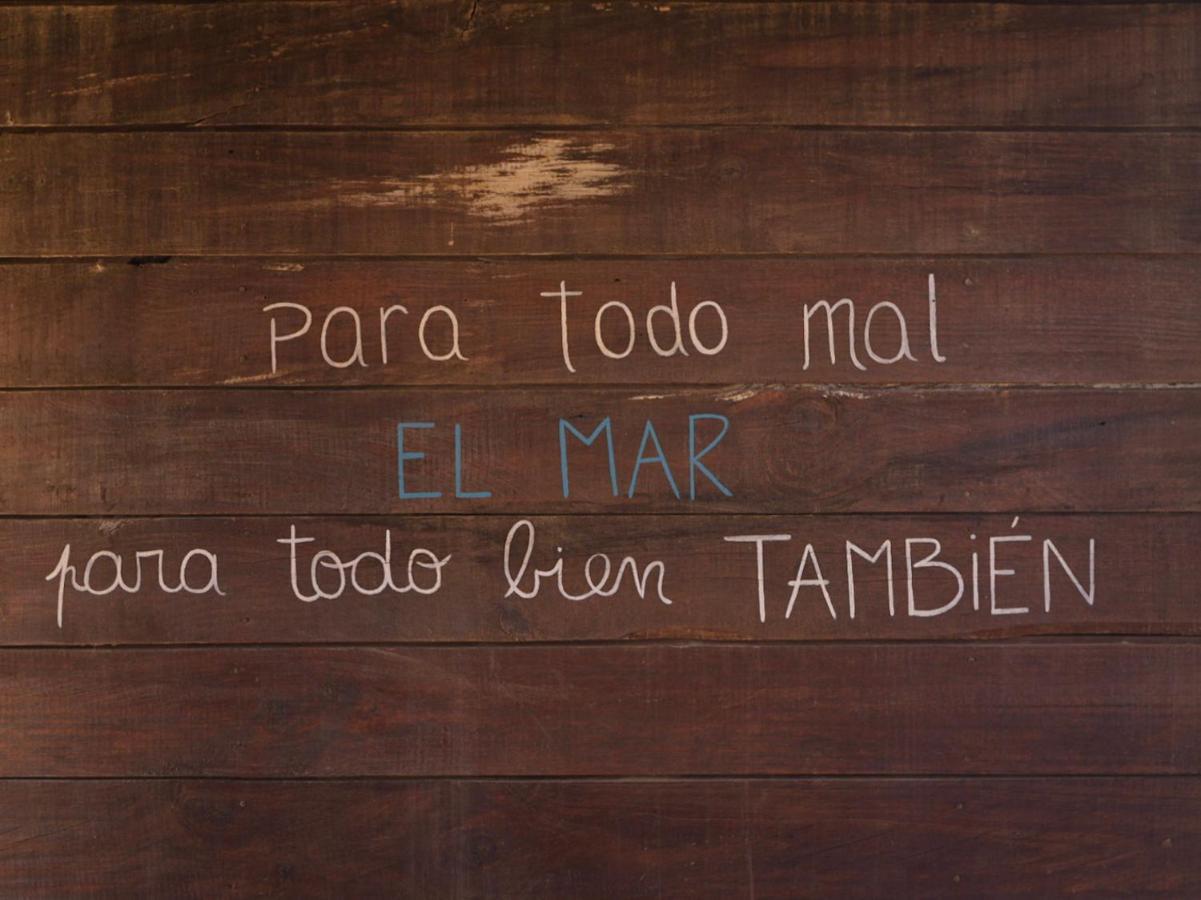 para todo mal
EL MAR
para todo bien TAMBiÉN